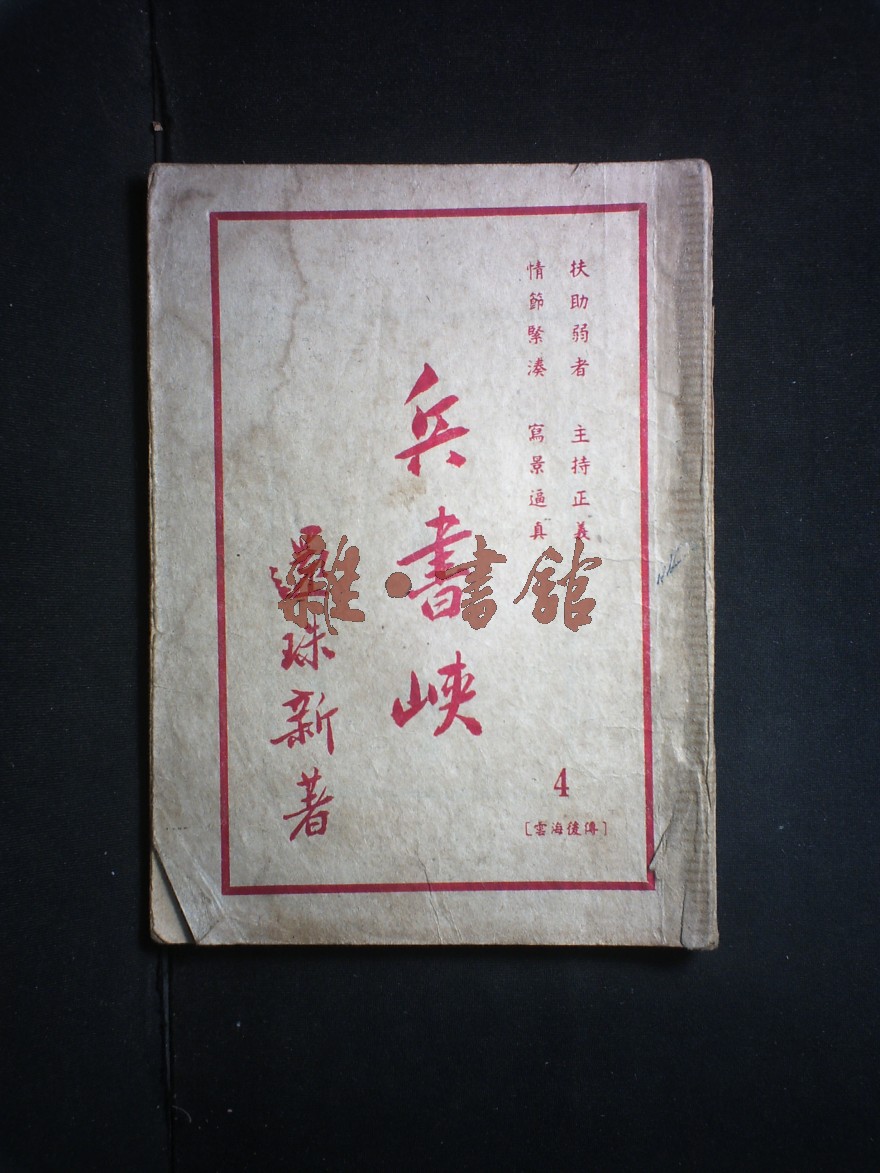 扶助弱者 主持正義
情節緊湊 寫景逼真
兵書峽
4
[雲海後傳]
還珠新著
雜·書館